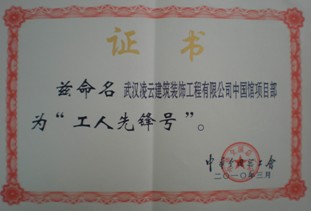 证书
兹命名 武汉凌云建筑装饰工程有限公司中国馆项目部
为“工人先锋号”。
二〇一〇年三月